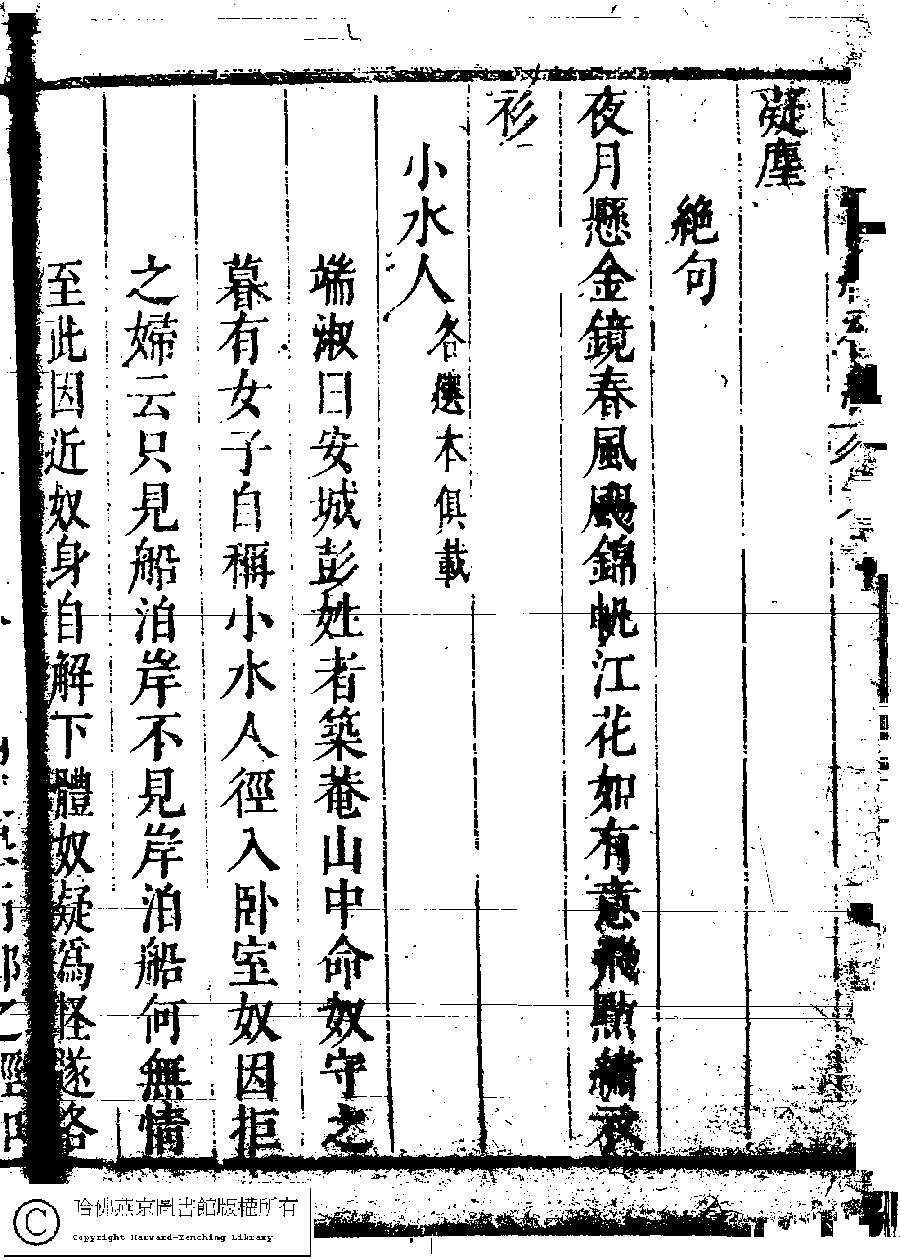 凝塵
絶句
夜月懸金鏡春風颺錦帆江花如有意飛點繡衣
衫
小水人 各選本俱載
端淑曰安城彭姓者築菴山中命奴守之
暮有女子自稱小水人徑入卧室奴因拒
之婦云只見船泊岸不見岸泊船何無情
至此因近奴身自解下體奴疑爲怪遂
哈佛燕京圖書館版權所有
Copyright Harvard-Yenching Library